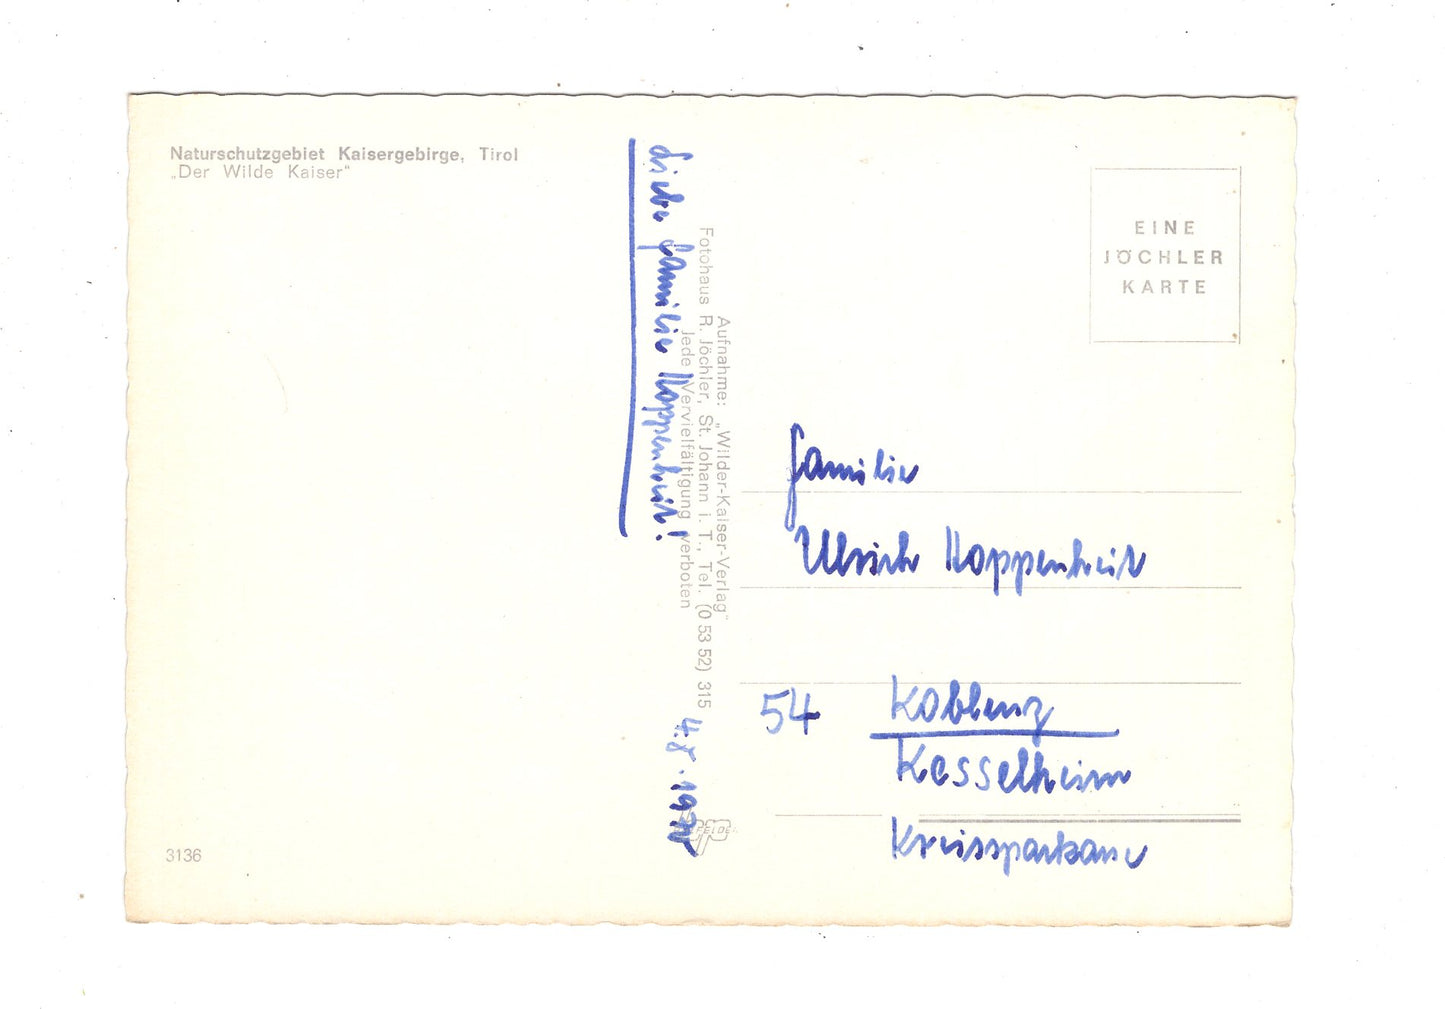 Naturschutzgebiet Kaisergebirge, Tirol
„Der Wilde Kaiser“
Liebe Familie Hoppenheit!
Aufnahme: „Wilder-Kaiser-Verlag“
Fotohaus R. Jöchler, St. Johann i. T., Tel. (0 53 52) 315
Jede Vervielfältigung verboten
4.8.
EINE
JÖCHLER
KARTE
Familie
Ulrich Hoppenheit
54 Koblenz
Kesselheim
Kreissparkasse
3136